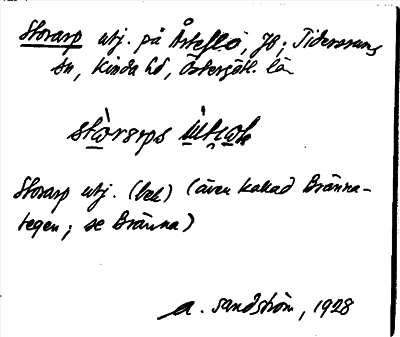 Storarp utj. på Årteflo, Jb; Tidersrums
sn, Kinda hd, Östergötl. län
stòrarps ùtjo̱rk
Storarp utj. (beb) (även kallad Bränna-
tegen; se Bränna)
A. Sandström, 1928